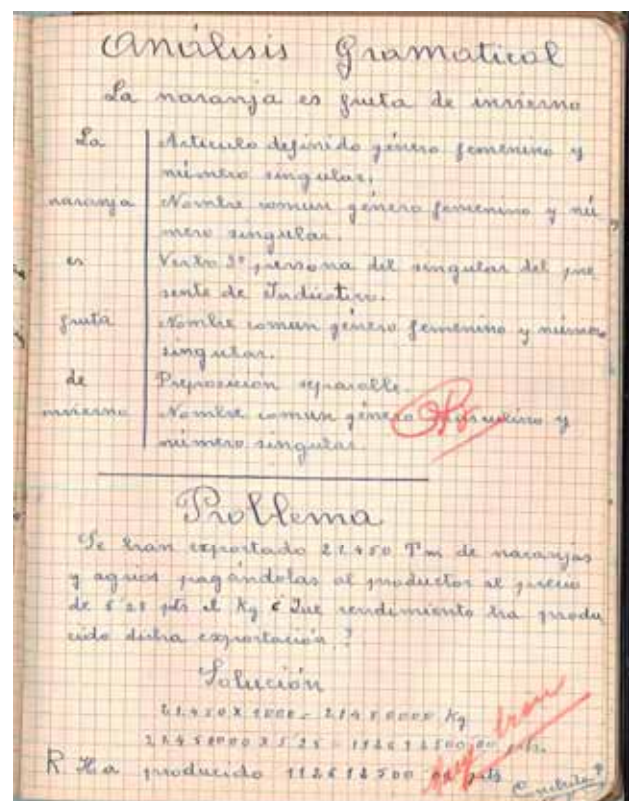 Análisis Gramatical
La naranja es fruta de invierno
La Artículo definido género femenino y
número singular.
naranja Nombre comun género femenino y nú
mero singular.
es Verbo 3ª persona del singular del pre
sente de Indicativo.
fruta Nombre comun género femenino y número
singular.
de Preposición separable.
invierno Nombre comun género masculino y
número singular.
Problema
Se han exportado 21.450 Tm de naranjas
y agrios pagándolas al productor al precio
de 5'25 pts el Kg ¿Que rendimiento ha produ
cido dicha exportación?
Solución
21.450 x 1000 = 21450000 Kg
21450000 x 5'25 = 112612500,00 pts.
R Ha producido 112612500 pts
Muy bien